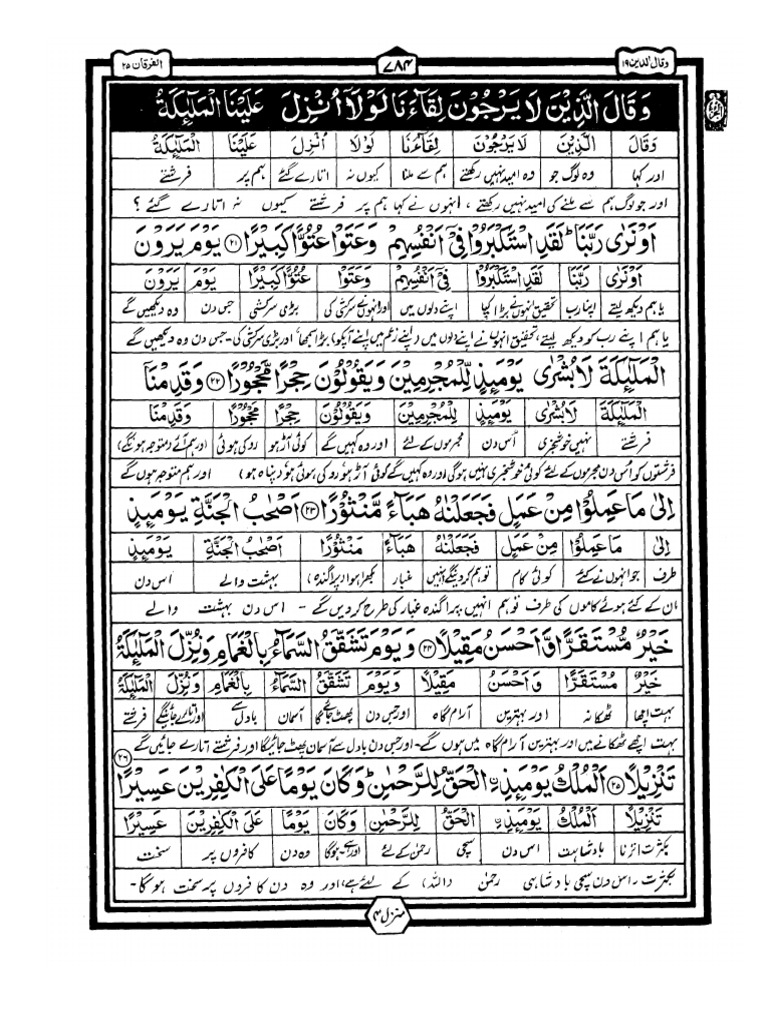 وقال الذین ۱۹
۷۸۴
الفرقان ۲۵
وَقَالَ الَّذِيْنَ لَا يَرْجُوْنَ لِقَآءَنَا لَوْلَآ اُنْزِلَ عَلَيْنَا الْمَلٰٓئِكَةُ
وَقَالَ الَّذِيْنَ لَا يَرْجُوْنَ لِقَآءَنَا لَوْلَا اُنْزِلَ عَلَيْنَا الْمَلٰٓئِكَةُ
اور کہا وہ لوگ جو وہ امید نہیں رکھتے ہم سے ملنا کیوں نہ اتارے گئے ہم پر فرشتے
اور جو لوگ ہم سے ملنے کی امید نہیں رکھتے ، انہوں نے کہا ہم پر فرشتے کیوں نہ اتارے گئے ؟
اَوْ نَرٰى رَبَّنَا ؕ لَقَدِ اسْتَكْبَرُوْا فِيْٓ اَنْفُسِهِمْ وَعَتَوْ عُتُوًّا كَبِيْرًا ۲۱ يَوْمَ يَرَوْنَ
اَوْ نَرٰى رَبَّنَا لَقَدِ اسْتَكْبَرُوْا فِيْٓ اَنْفُسِهِمْ وَعَتَوْ عُتُوًّا كَبِيْرًا يَوْمَ يَرَوْنَ
یا ہم دیکھ لیتے اپنا رب تحقیق انہوں نے بڑا کیا اپنے دلوں میں اور انہوں نے سرکشی کی بڑی سرکشی جس دن وہ دیکھیں گے
یا ہم اپنے رب کو دیکھ لیتے، تحقیق انہوں نے اپنے دلوں میں (اپنے زعم میں اپنے آپکو) بڑا سمجھا اور بڑی سرکشی کی۔ جس دن وہ دیکھیں گے
الْمَلٰٓئِكَةَ لَا بُشْرٰى يَوْمَئِذٍ لِّلْمُجْرِمِيْنَ وَيَقُوْلُوْنَ حِجْرًا مَّحْجُوْرًا ۲۲ وَقَدِمْنَآ
الْمَلٰٓئِكَةَ لَا بُشْرٰى يَوْمَئِذٍ لِّلْمُجْرِمِيْنَ وَيَقُوْلُوْنَ حِجْرًا مَّحْجُوْرًا وَقَدِمْنَآ
فرشتے نہیں خوشخبری اس دن مجرموں کے لئے اور وہ کہیں گے کوئی آڑ ہو روکی ہوئی اور ہم آئے (متوجہ ہونگے)
فرشتوں کو اس دن مجرموں کے لئے کوئی خوشخبری نہیں ہوگی اور وہ کہیں گے کوئی آڑ ہو روکی ہوئی ہو (پناہ ہو) اور ہم متوجہ ہوں گے
اِلٰى مَا عَمِلُوْا مِنْ عَمَلٍ فَجَعَلْنٰهُ هَبَآءً مَّنْثُوْرًا ۲۳ اَصْحٰبُ الْجَنَّةِ يَوْمَئِذٍ
اِلٰى مَا عَمِلُوْا مِنْ عَمَلٍ فَجَعَلْنٰهُ هَبَآءً مَّنْثُوْرًا اَصْحٰبُ الْجَنَّةِ يَوْمَئِذٍ
طرف جو انہوں نے کئے کوئی کام تو ہم کردینگے انہیں غبار بکھرا ہوا (پراگندہ) بہشت والے اس دن
ان کے کئے ہوئے کاموں کی طرف تو ہم انہیں پراگندہ غبار کی طرح کردیں گے ۔ اس دن بہشت والے
خَيْرٌ مُّسْتَقَرًّا وَّاَحْسَنُ مَقِيْلًا ۲۴ وَيَوْمَ تَشَقَّقُ السَّمَآءُ بِالْغَمَامِ وَنُزِّلَ الْمَلٰٓئِكَةُ
خَيْرٌ مُّسْتَقَرًّا وَّاَحْسَنُ مَقِيْلًا وَيَوْمَ تَشَقَّقُ السَّمَآءُ بِالْغَمَامِ وَنُزِّلَ الْمَلٰٓئِكَةُ
بہت اچھا ٹھکانہ اور بہترین آرام گاہ اور جس دن پھٹ جائے گا آسمان بادل سے اور اتارے جائینگے فرشتے
بہت اچھے ٹھکانے میں اور بہترین آرام گاہ میں ہوں گے۔ اور جس دن بادل سے آسمان پھٹ جائیگا اور فرشتے اتارے جائیں گے
تَنْزِيْلًا ۲۵ اَلْمُلْكُ يَوْمَئِذِ ِۨ الْحَقُّ لِلرَّحْمٰنِ ؕ وَكَانَ يَوْمًا عَلَى الْكٰفِرِيْنَ عَسِيْرًا ۲۶
تَنْزِيْلًا اَلْمُلْكُ يَوْمَئِذِ ِۨ الْحَقُّ لِلرَّحْمٰنِ وَكَانَ يَوْمًا عَلَى الْكٰفِرِيْنَ عَسِيْرًا
بکثرت اترنا بادشاہت اس دن سچی رحمن کے لئے اور ہے ہوگا وہ دن کافروں پر سخت
بکثرت ، اس دن سچی بادشاہی رحمن (اللہ) کے لئے ہے، اور وہ دن کافروں پر سخت ہوگا۔
منزل ۴